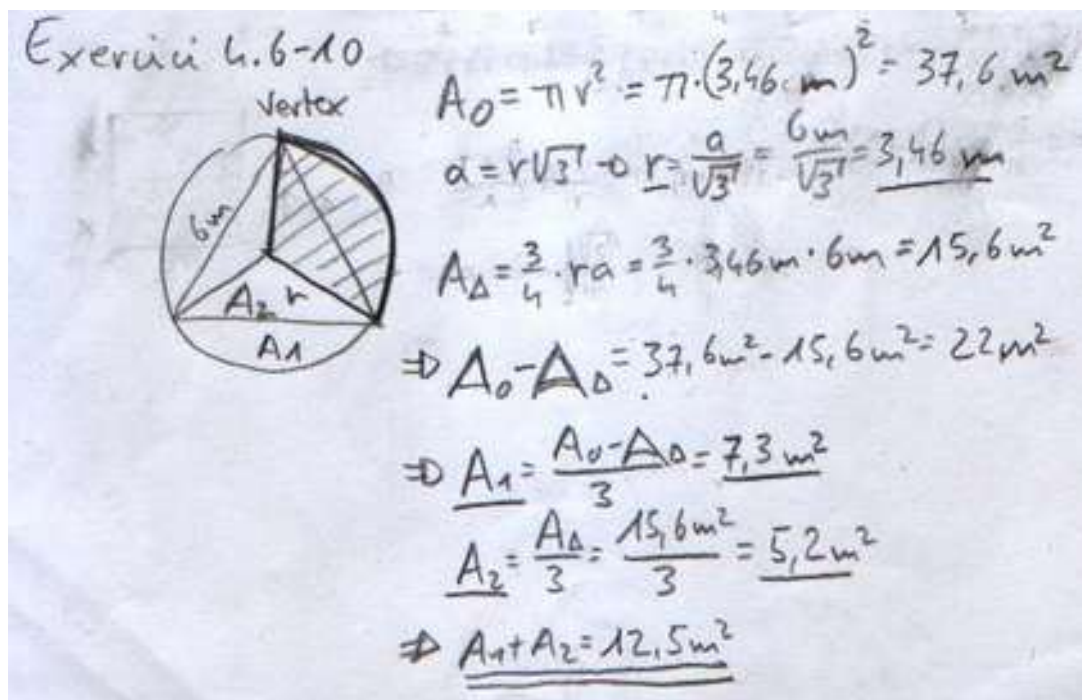 Exercici 4.6-10
Vertex
6m
A₂ r
A1
A₀ = π r² = π·(3,46 m)² = 37,6 m²
a = r√3 → r = a/√3 = 6m/√3 = 3,46 m
A_Δ = 3/4 · ra = 3/4 · 3,46m · 6m = 15,6m²
⇒ A₀ - A_Δ = 37,6m² - 15,6m² = 22 m²
⇒ A₁ = (A₀ - A_Δ)/3 = 7,3 m²
A₂ = A_Δ/3 = 15,6m²/3 = 5,2 m²
⇒ A₁ + A₂ = 12,5m²